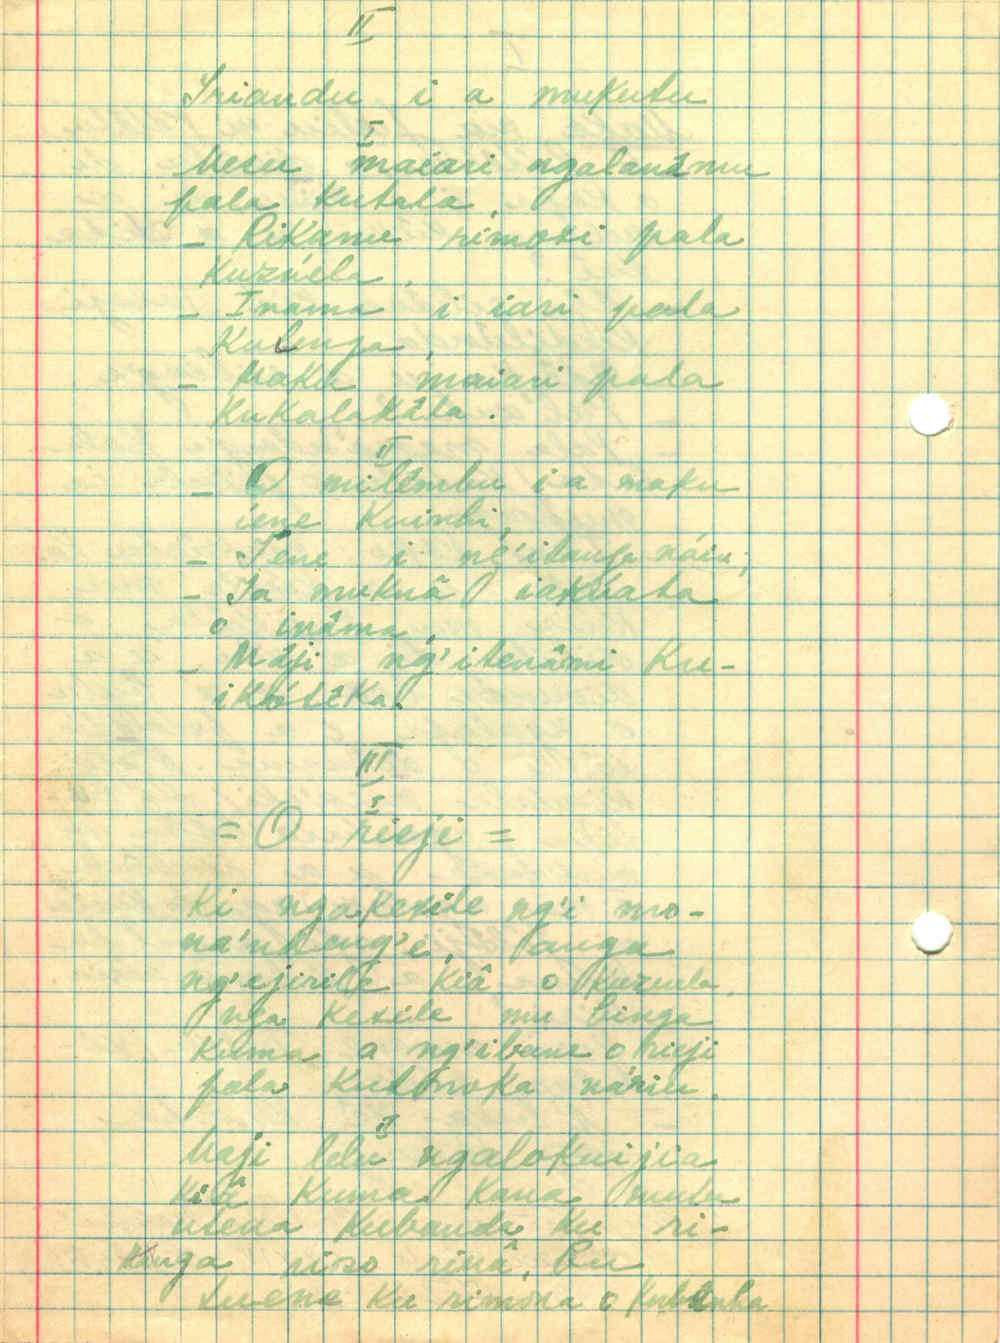 II
Iriandu i a mukutu
I
Mesu maiari ngalandmu
pala kutala,
- Rikanu rimoxi pala
kuzuela,
- Inama i iari pala
Kulenga,
- Maku maiari pala
Kukalakela.
II
- O milêmbu i a maku
iene kuimbi,
- Iene i ng'ibanga náiu;
- Ia mukuâ iambata
o inâma,
- Máji ng'itenâmi ku-
ikóteka.
III
I
= O rieji =
Ki ngakexile ng'i mo-
na'ndeng'e, banga
ng'ejirile kiâ o kuzuela,
nga kexile mu binga
kuma a ng'ibane o rieji
pala kutonoka náriu.
II
Maji lelu ngalokuijia
kiâ kuma kana mutu
utena kubanda ku ri-
kanga rioso rinâ, bu
luene ku rimoxa o kubanba